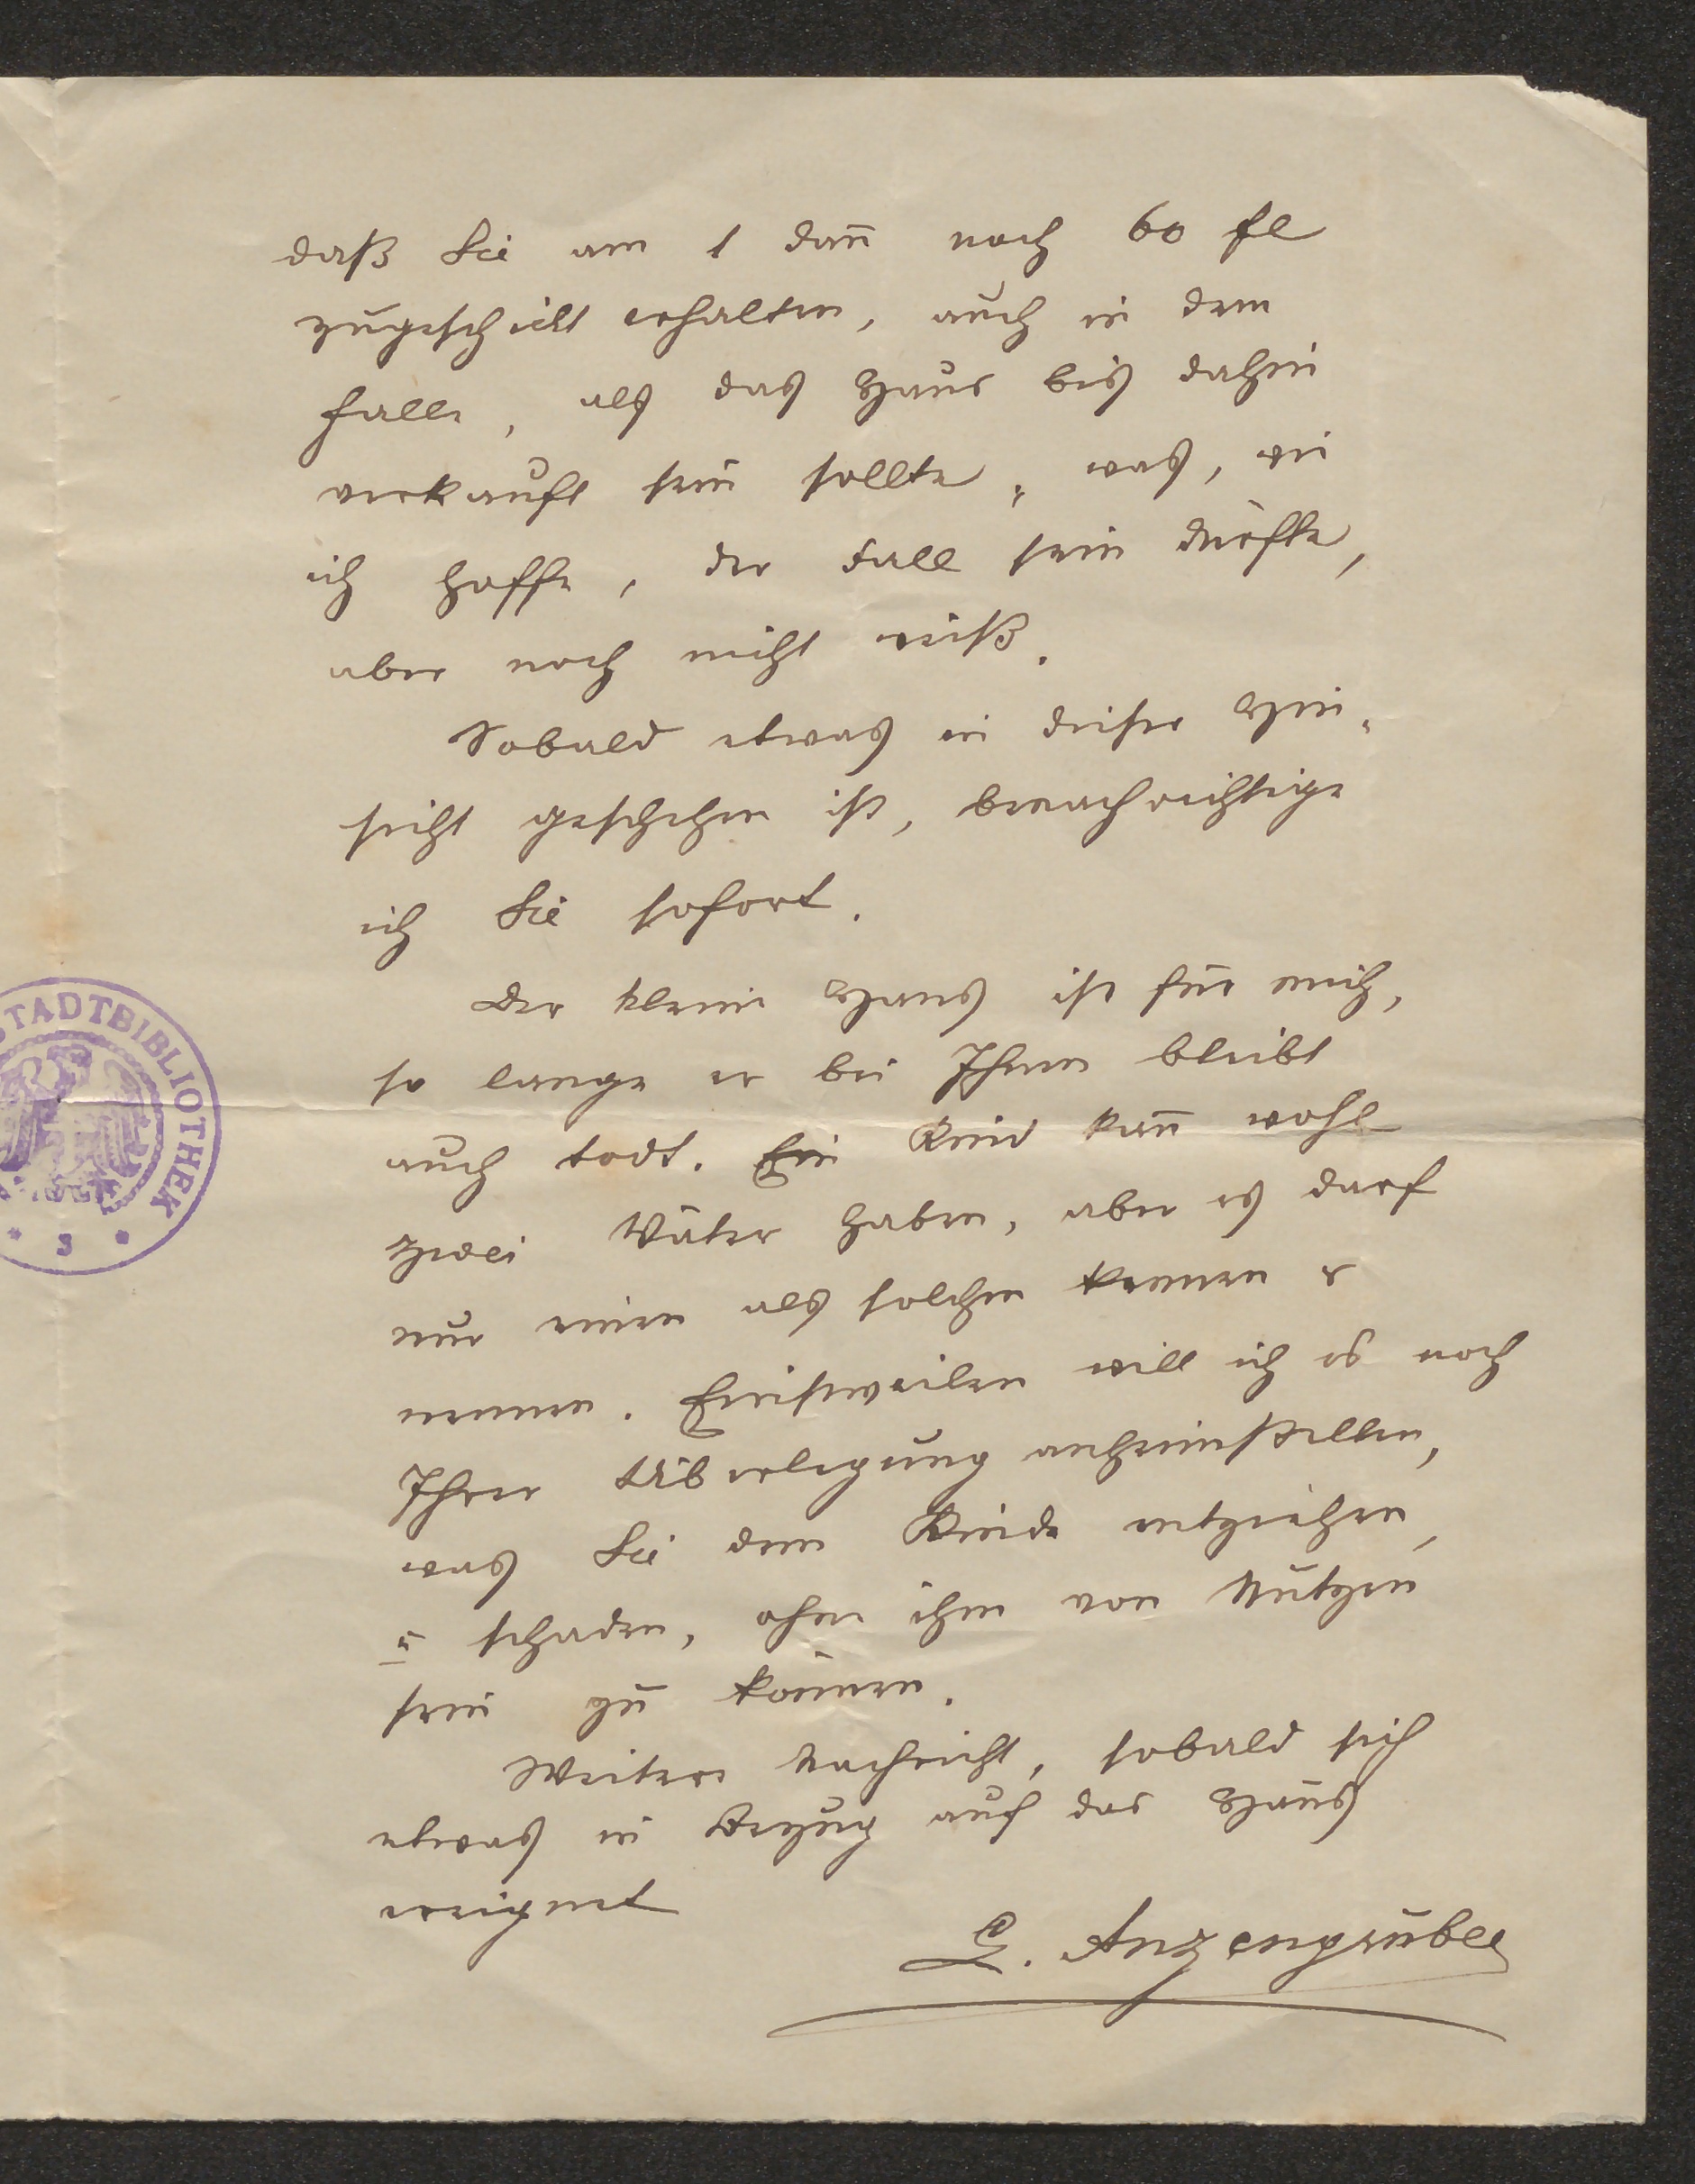 daß Sie am 1 dan̄ noch 60 fl
zugeschickt erhalten, auch in dem
Falle, als das Haus bis dahin
verkauft sein sollte, was, wie
ich hoffe, der Fall sein dürfte,
aber noch nicht weiß.
Sobald etwas in dieser Hin-
sicht geschehen ist, benachrichtige
ich Sie sofort.
Der kleine Hans ist für mich,
so lange er bei Ihnen bleibt
auch todt. Ein Kind kan̄ wohl
zwei Väter haben, aber es darf
nur einen als solchen kennen &
nennen. Einstweilen will ich es noch
Ihrer Überlegung anheimstellen,
was Sie dem Kinde entziehen,
u schaden, ohne ihm von Nutzen
sein zu können.
Weitere Nachricht, sobald sich
etwas in Bezug auf das Haus
ereignet
L. Anzengruber
STADTBIBLIOTHEK
* 3 *